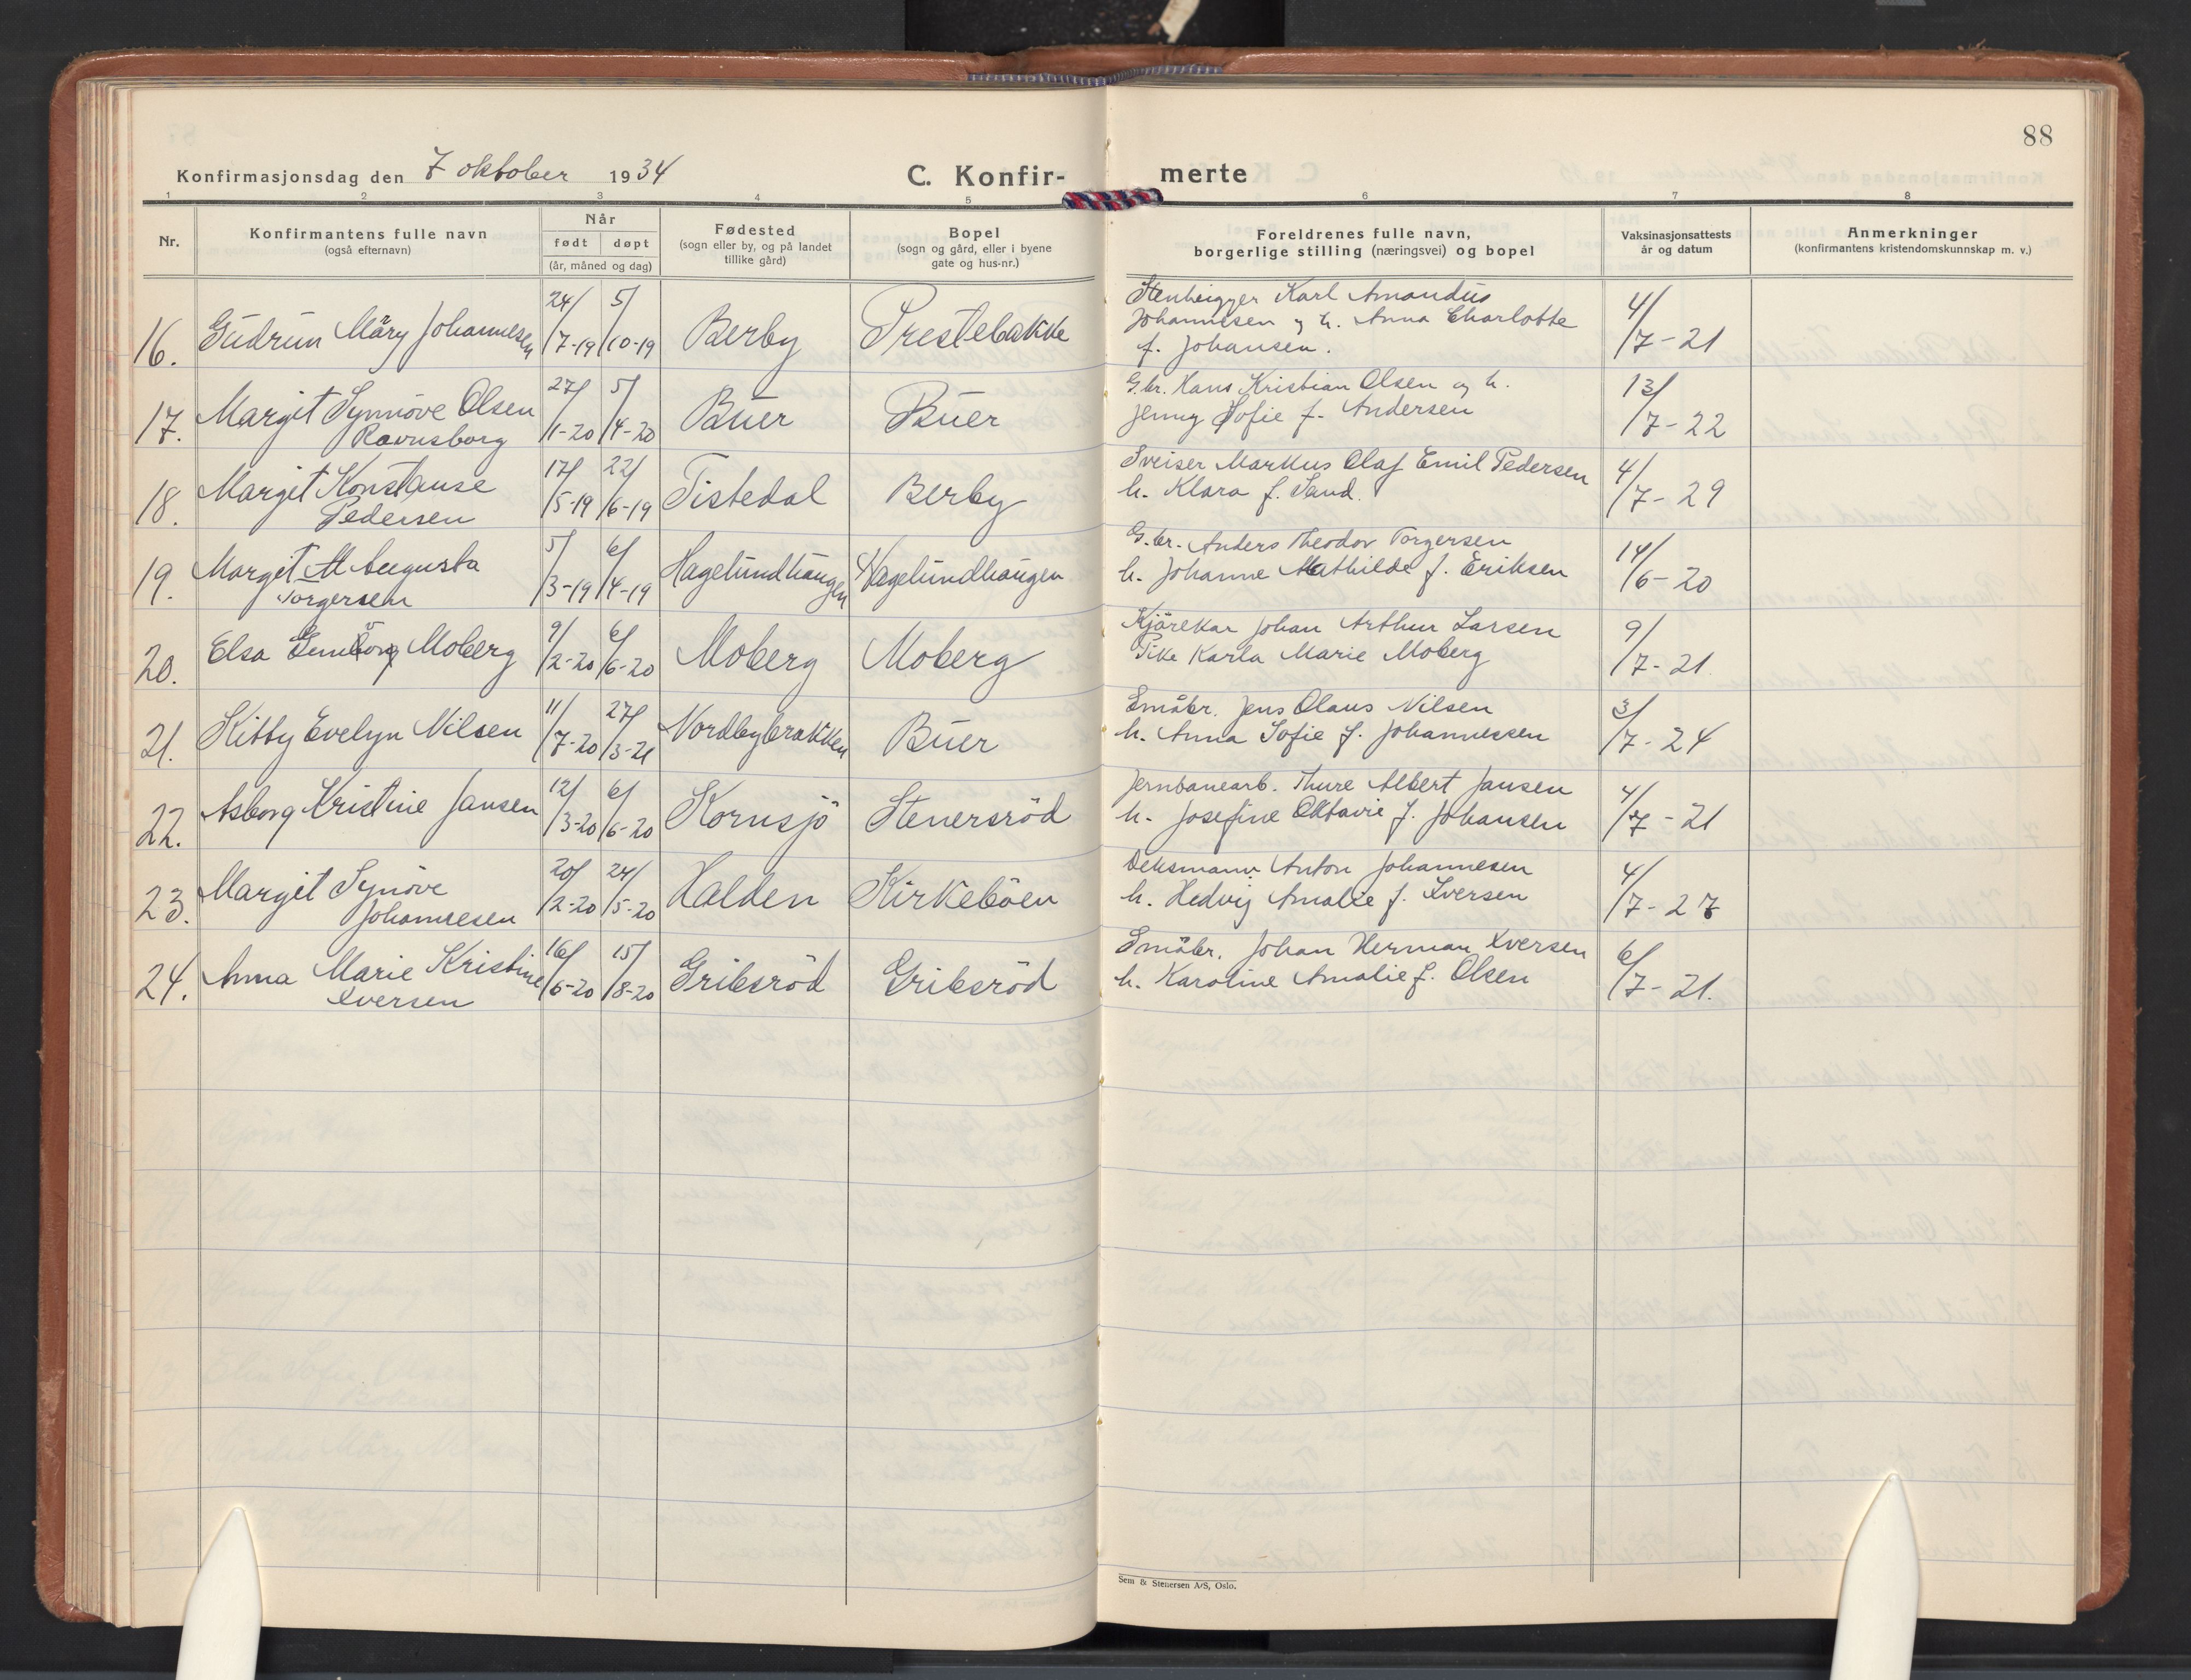 88
Konfirmasjonsdag den 7 oktober 1934
C. Konfir-
merte
1 2 3 4 5 6 7 8
Nr.
Konfirmantens fulle navn
(også efternavn)
Når
født døpt
(år, måned og dag)
Fødested
(sogn eller by, og på landet
tillike gård)
Bopel
(sogn og gård, eller i byene
gate og hus-nr.)
Foreldrenes fulle navn,
borgerlige stilling (næringsvei) og bopel
Vaksinasjonsattests
år og datum
Anmerkninger
(konfirmantens kristendomskunnskap m. v.)
16. Gudrun Märy Johannesen 24/7-19 5/10-19 Berby Prestebakke
Stenhugger Karl Amandus
Johannesen og h. Anna Charlotte
f. Johansen.
4/7-21
17. Margit Synnöve Olsen
Ravnsborg
27/1-20 5/4-20 Buer Buer
G.br. Hans Kristian Olsen og h.
Jenny Sofie f. Andersen
13/7-22
18. Margit Konstanse
Pedersen
17/5-19 22/6-19 Tistedal Berby
Sveiser Markus Olaf Emil Pedersen
h. Klara f. Sand.
4/7-29
19. Margit M Augusta
Torgersen
5/3-19 6/4-19 Hagelundhaugen Hagelundhaugen
G.br. Anders Theodor Torgersen
h. Johanne Mathilde f. Eriksen
14/6-20
20. Elsa Moberg 9/2-20 6/6-20 Moberg Moberg
Kjörekar Johan Arthur Larsen
Pike Karla Marie Moberg
9/7-21
21. Kitty Evelyn Nilsen 11/7-20 27/3-21 Nordbybrakken Buer
Småbr. Jens Olaus Nilsen
h. Anna Sofie f. Johannessen
3/7-24
22. Asborg Kristine Jansen 12/3-20 6/6-20 Kornsjö Stenersröd
Jernbanearb. Thure Albert Jansen
h. Josefine Oktavie f. Johansen
4/7-21
23. Margit Synöve
Johannesen
20/2-20 24/5-20 Halden Kirkeböen
Anton Johannesen
h. Hedvig Amalie f. Iversen
4/7-27
24. Anna Marie Kristine
Iversen
16/6-20 15/8-20 Gribsröd Gribsröd
Småbr. Johan Herman Iversen
h. Karoline Amalie f. Olsen
6/7-21.
Sem & Stenersen A/S, Oslo.